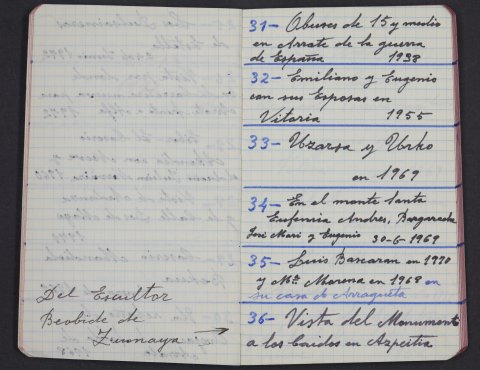 Del Escultor
Beobide de
Zumaya →
31- Obuses de 15 y medio
en Arrate de la guerra
de España 1938
32- Emiliano y Eugenio
con sus Esposas en
Vitoria 1955
33- Uzarra y Urko
en 1969
34- En el monte Santa
Eufemia Andres,
Jose Mari y Eugenio 30-6-1969
35- Luis Bascaran en 1970
y Mª Morena en 1968 en
su casa de Arragueta
36- Vista del Monumento
a los Caidos en Azpeitia